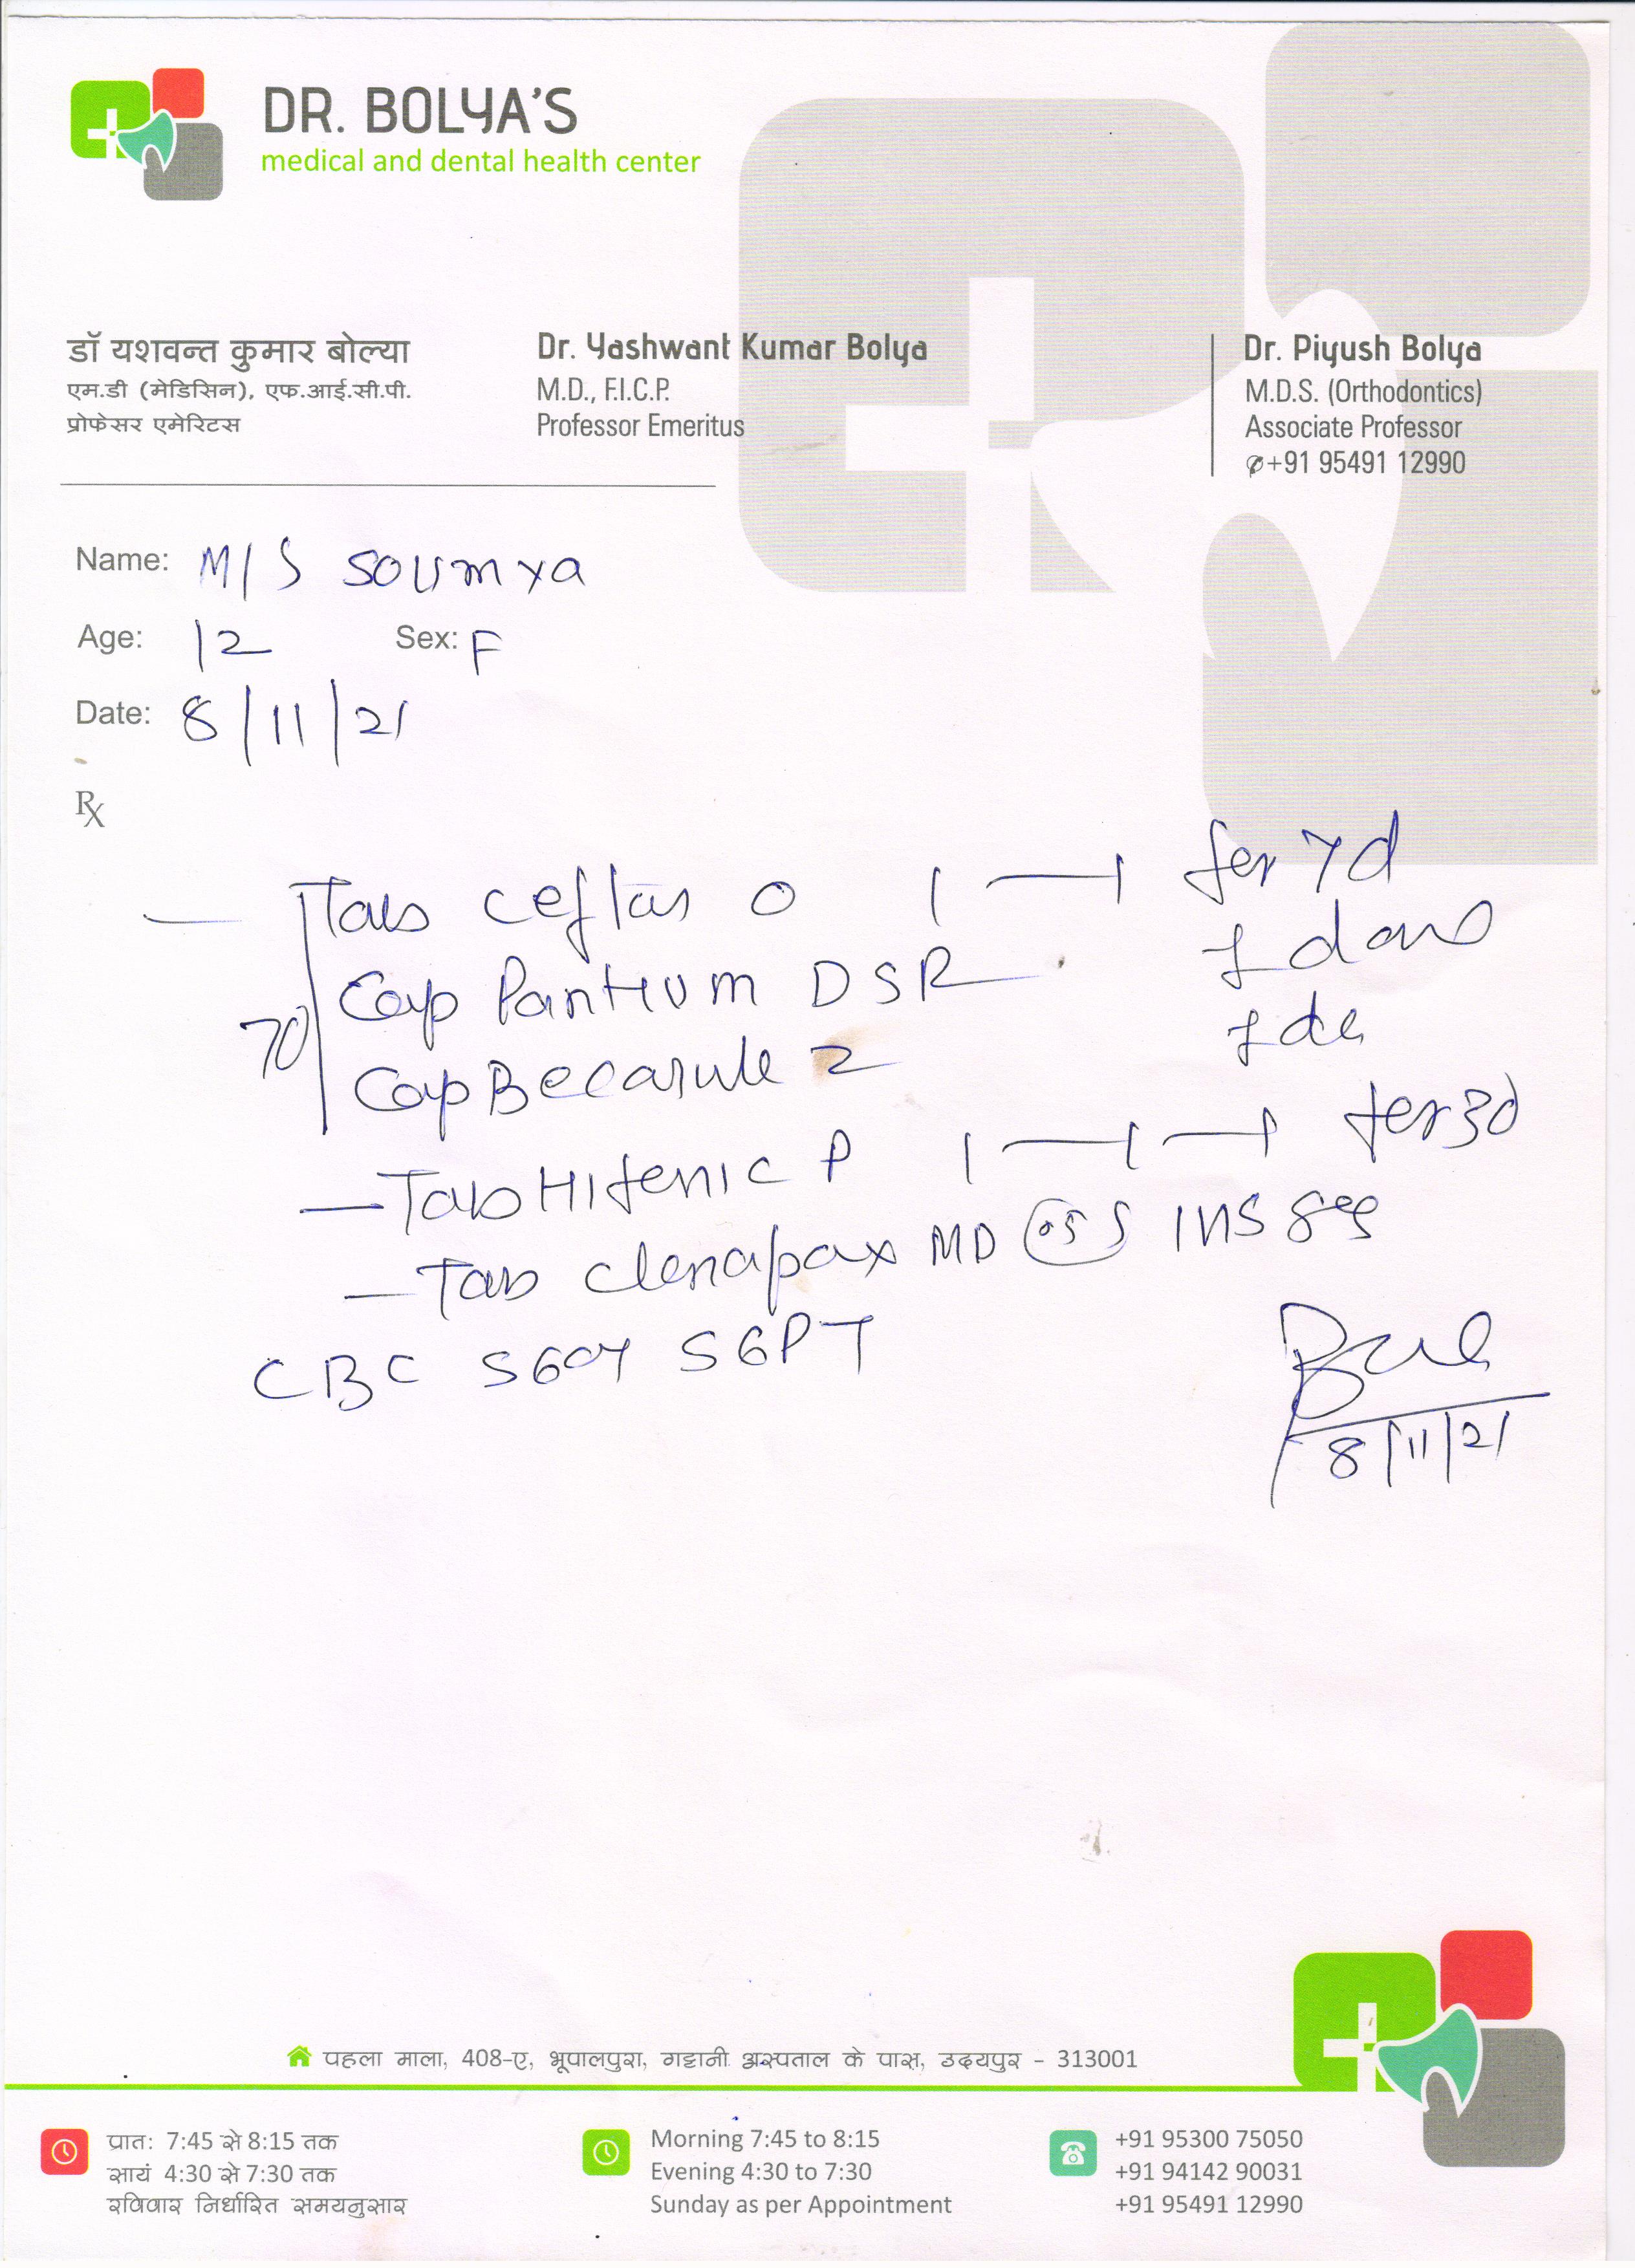 DR. BOLYA'S
medical and dental health center
डॉ यशवन्त कुमार बोल्या
एम.डी (मेडिसिन), एफ.आई.सी.पी.
प्रोफेसर एमेरिटस
Dr. Yashwant Kumar Bolya
M.D., F.I.C.P.
Professor Emeritus
Dr. Piyush Bolya
M.D.S. (Orthodontics)
Associate Professor
✆+91 95491 12990
Name: M/S SOUMYA
Age: 12 Sex: F
Date: 8/11/21
Rx
— Tab ceftas O 1 — 1 for 7d
Cap Pantium DSR
70
Cap Becasule Z
— Tab Hifenic P 1 — 1 — 1 for 3d
— Tab MD
CBC SGOT SGPT
8/11/21
पहला माला, 408-ए, भूपालपुरा, गट्टानी अस्पताल के पास, उदयपुर - 313001
प्रात: 7:45 से 8:15 तक
सायं 4:30 से 7:30 तक
रविवार निर्धारित समयनुसार
Morning 7:45 to 8:15
Evening 4:30 to 7:30
Sunday as per Appointment
+91 95300 75050
+91 94142 90031
+91 95491 12990